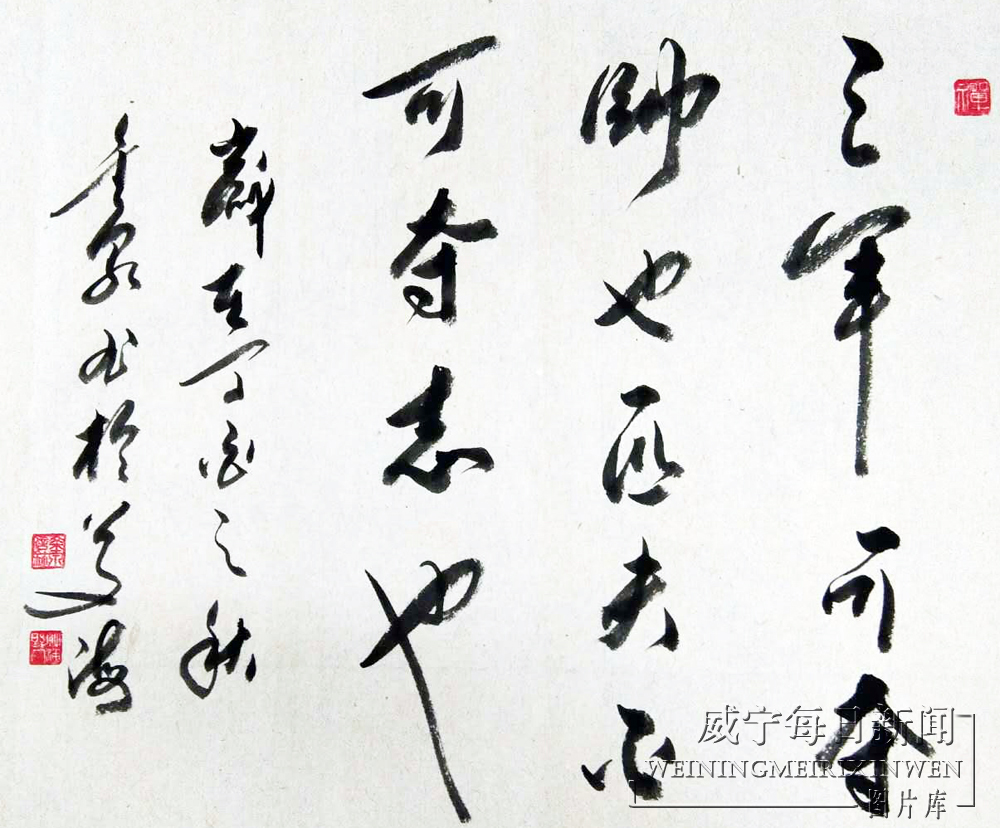 三军可夺
帥也匹夫不
可夺志也
歲在丁酉之秋
泉书於草海
威宁每日新闻
WEININGMEIRIXINWEN
图片库